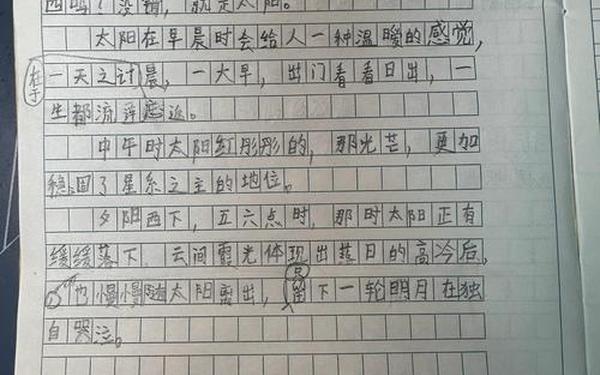 四吗？没错，就是太阳。
太阳在早晨时会给人一种温暖的感觉，
在于
一天之计晨，一大早，出门看看日出，一
生都流连忘返。
中午时太阳红彤彤的，那光芒，更加
稳固了星系之主的地位。
夕阳西下，五六点时，那时太阳正有
缓缓落下，云间霞光体现出落日的高冷后，
也慢慢随太阳离出，
只
留下一轮明月在独
自哭泣。